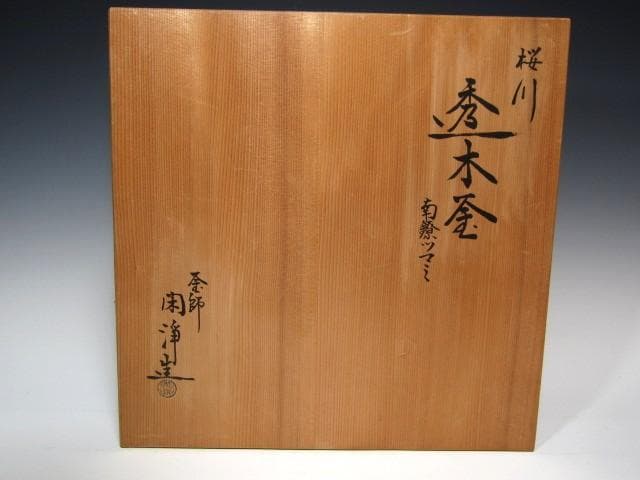 桜川
透木釜
南鐐ツマミ
釜師
閑浄造